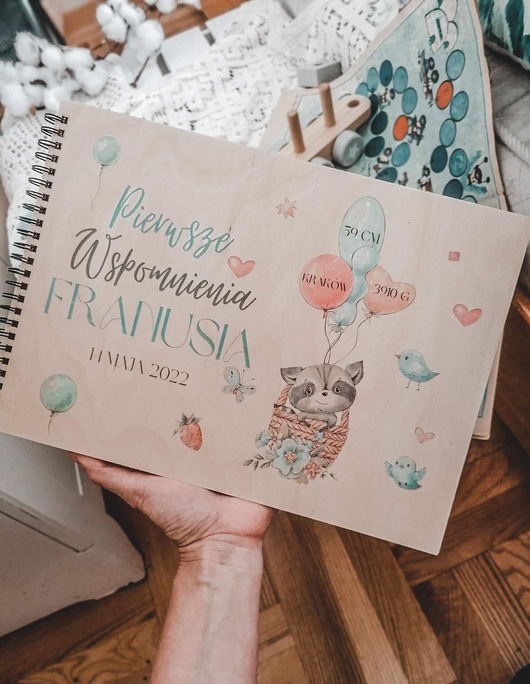 Pierwsze
Wspomnienia
FRANUSIA
14 MAJA 2022
59 CM
KRAKÓW
3910 G